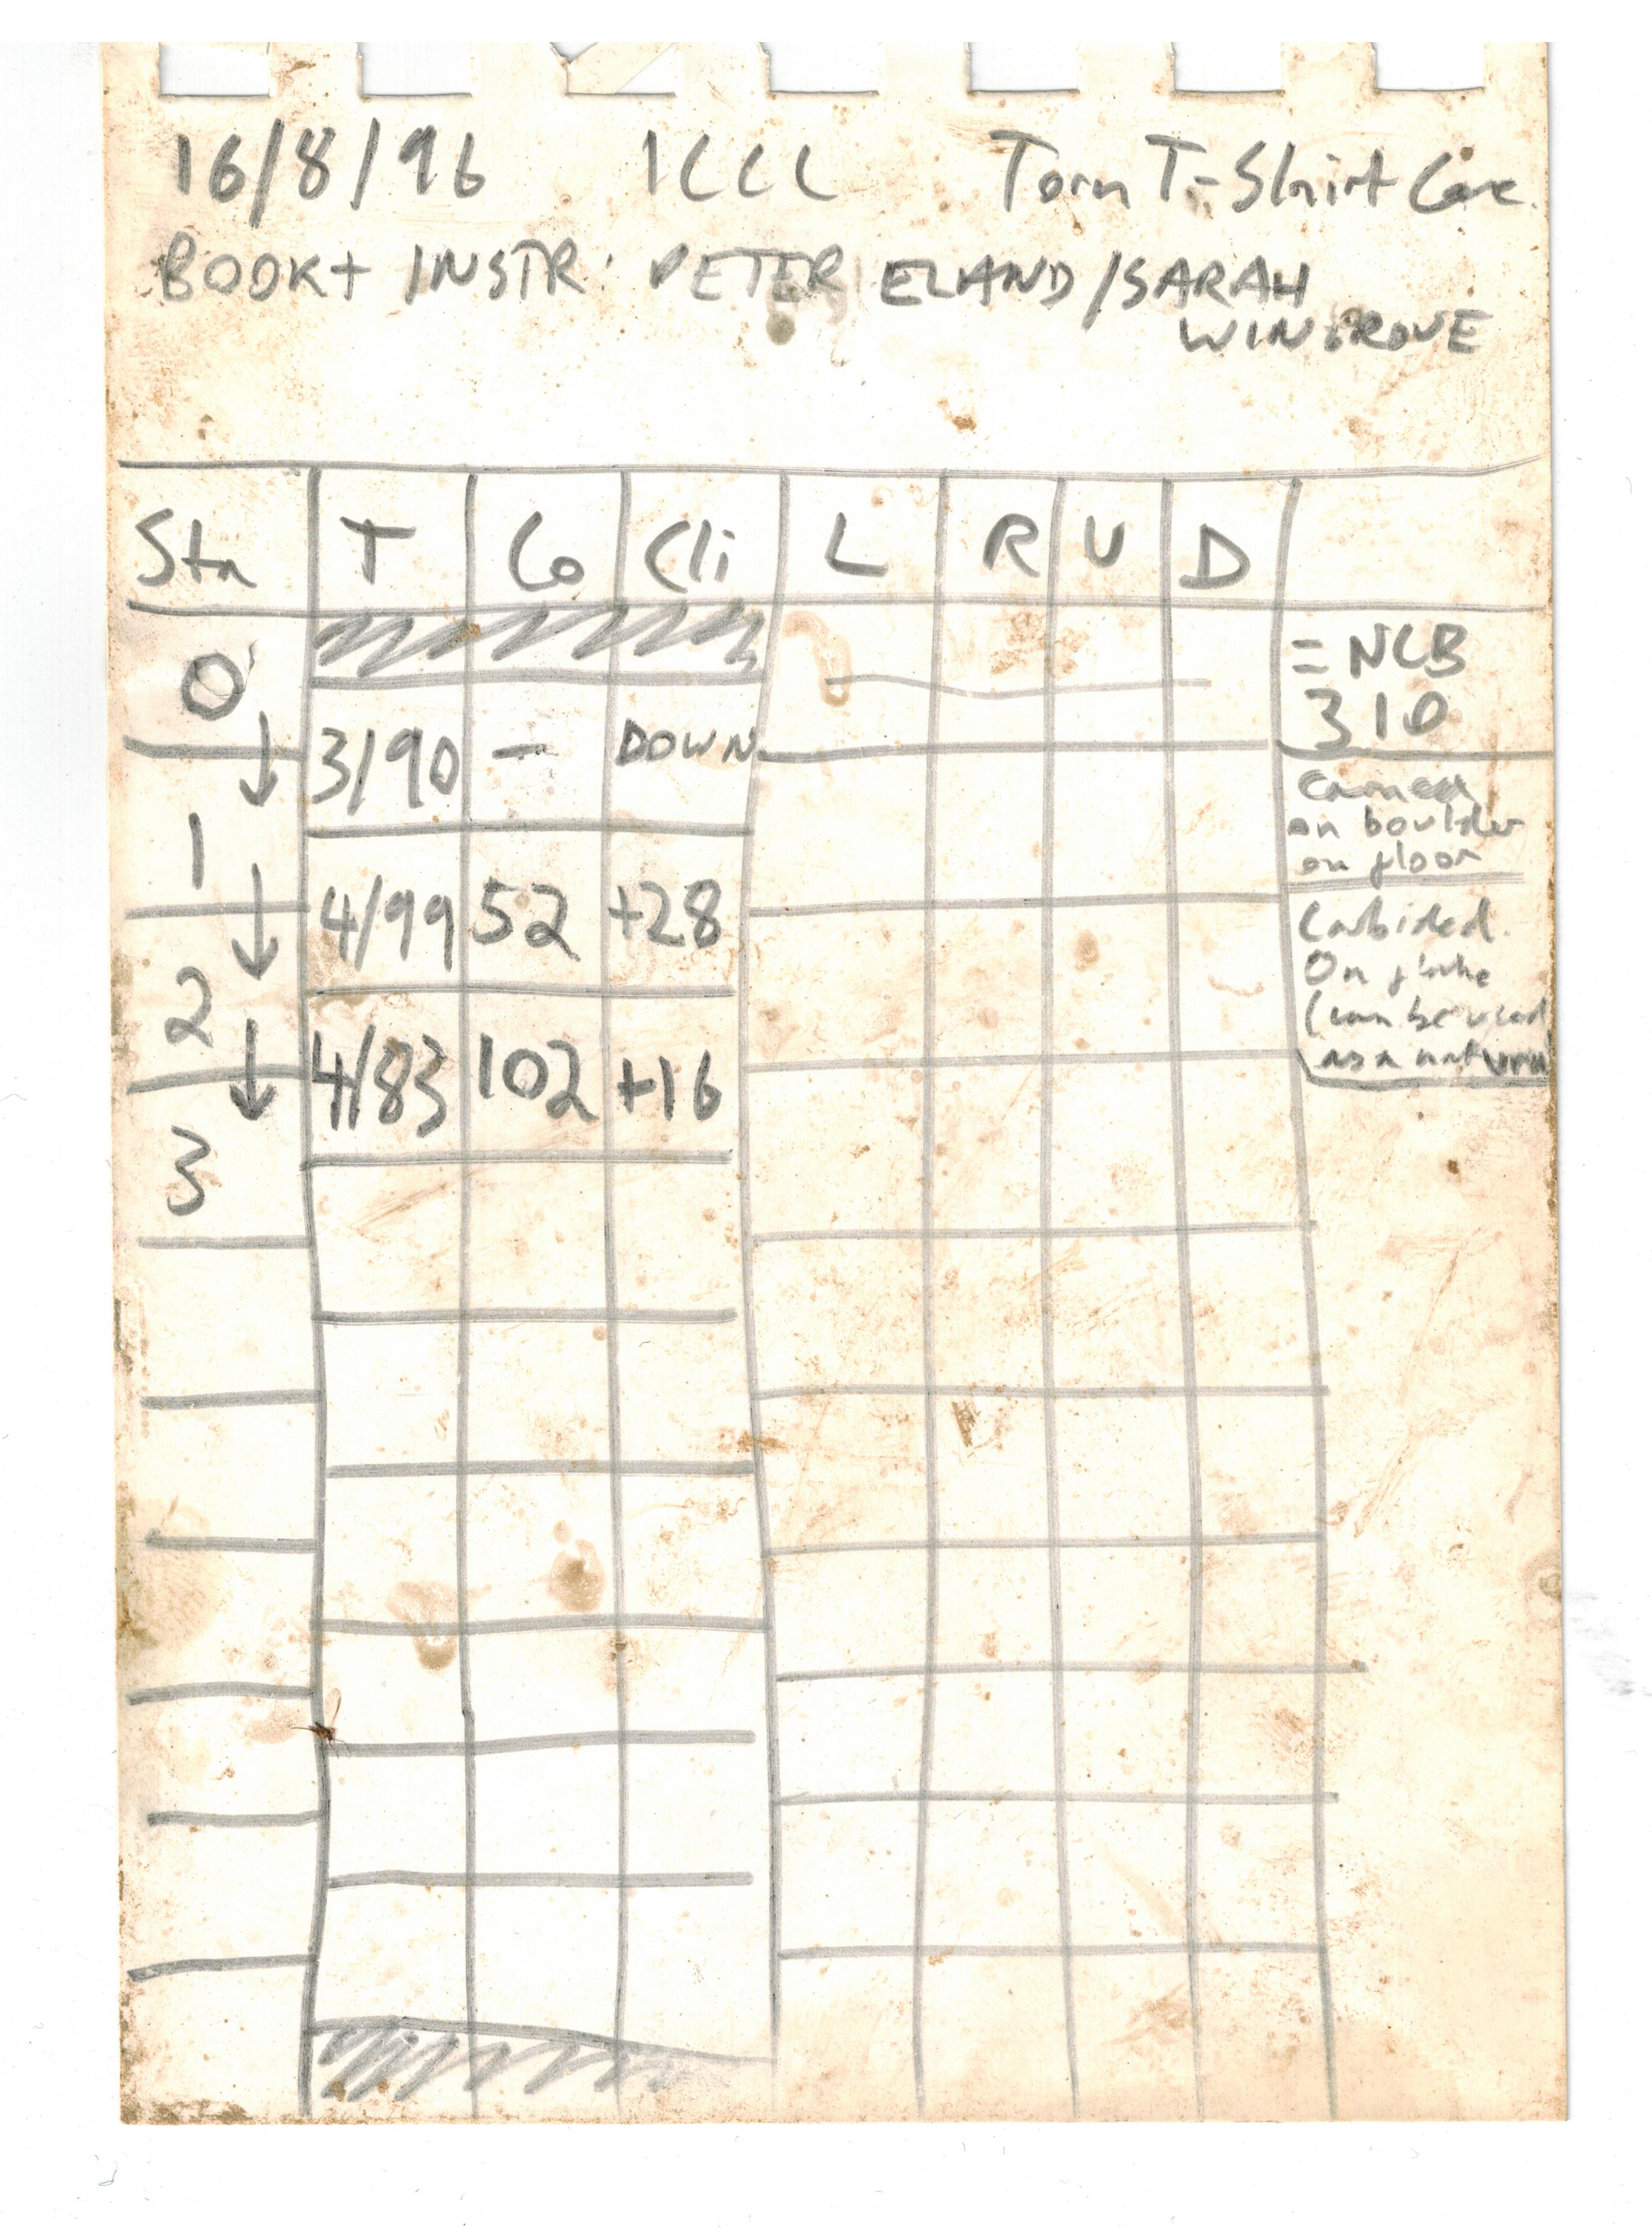 16/8/96 ICCC Torn T-Shirt Cave.
BOOK+ INSTR: PETER ELAND/SARAH
WINGROVE
Stn T Co Cli L R U D
0 = NCB
310
3/90 - DOWN
1 on boulder
on floor
4/99 52 +28
2 Carbided.
On flake
(can be used
as a natural
4/83 102 +16
3